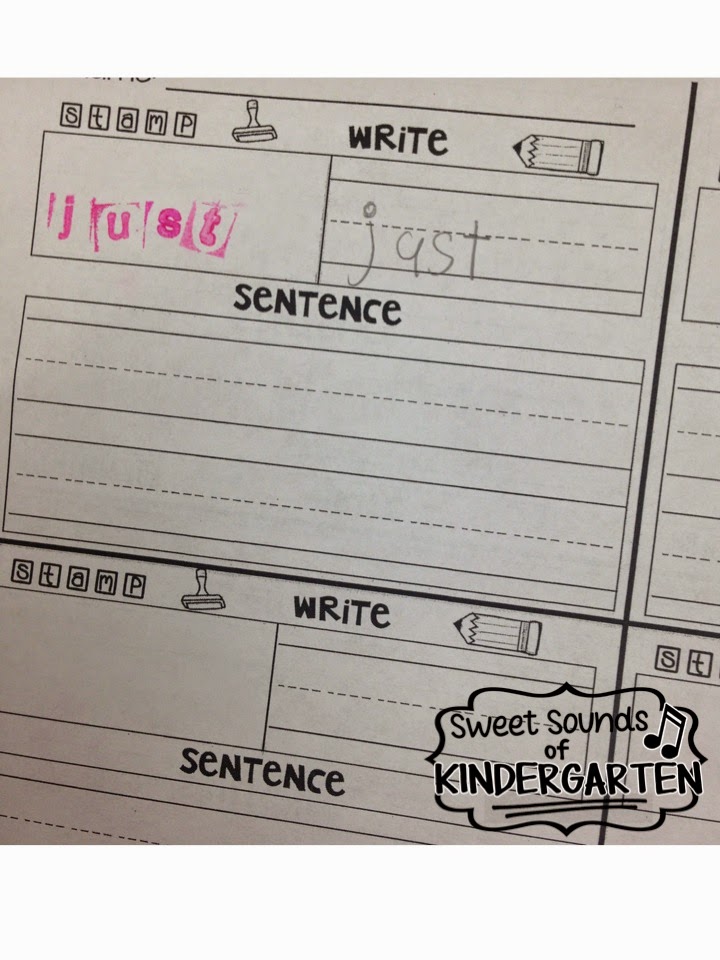 stamp WRiTE
just jast
SENTENCE
stamp WRiTE
st
SENTENCE
Sweet Sounds
of
KINDERGARTEN